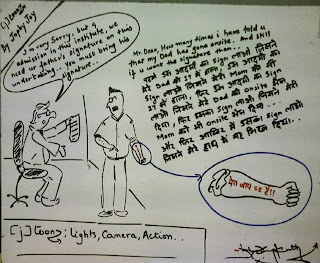 [j]toonz
by Jojy Joy
I'm very Sorry, but 4
admission in this institute, we
need ur father's signature on this
undertaking.. you must bring his
signature..
Mr. Dean, How many times i have told u
that my Dad has gone onsite.. And still
if u want the signature then...
पहले उस आदमी का sign लाओ जिसने
मेरे Dad को
आदमी का
sign लाओ जिसने मेरी Mom को
Sign लाओ जिसने मेरे Dad को onsite भेजा
दिया, फिर उसका sign लाओ जिसने मेरी
Mom को भी onsite भेज दिया...
और फिर आखिर में उसका sign लाओ
जिसने मेरे हाथ में यह लिख दिया..
मेरा बाप SE है!!
[j]toonz: Lights, Camera, Action..